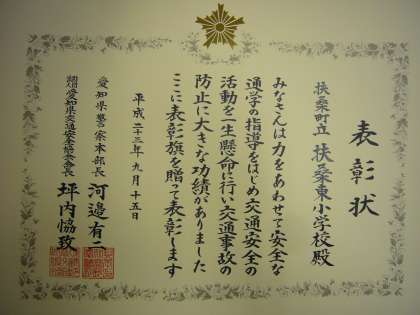 表彰状
扶桑町立 扶桑東小学校殿
みなさんは力をあわせて安全な
通学の指導をはじめ交通安全の
活動を一生懸命に行い交通事故の
防止に大きな功績がありました
ここに表彰旗を贈って表彰します
平成二十三年九月十五日
愛知県警察本部長 河邉有二
愛知県交通安全協会会長 坪内恊致